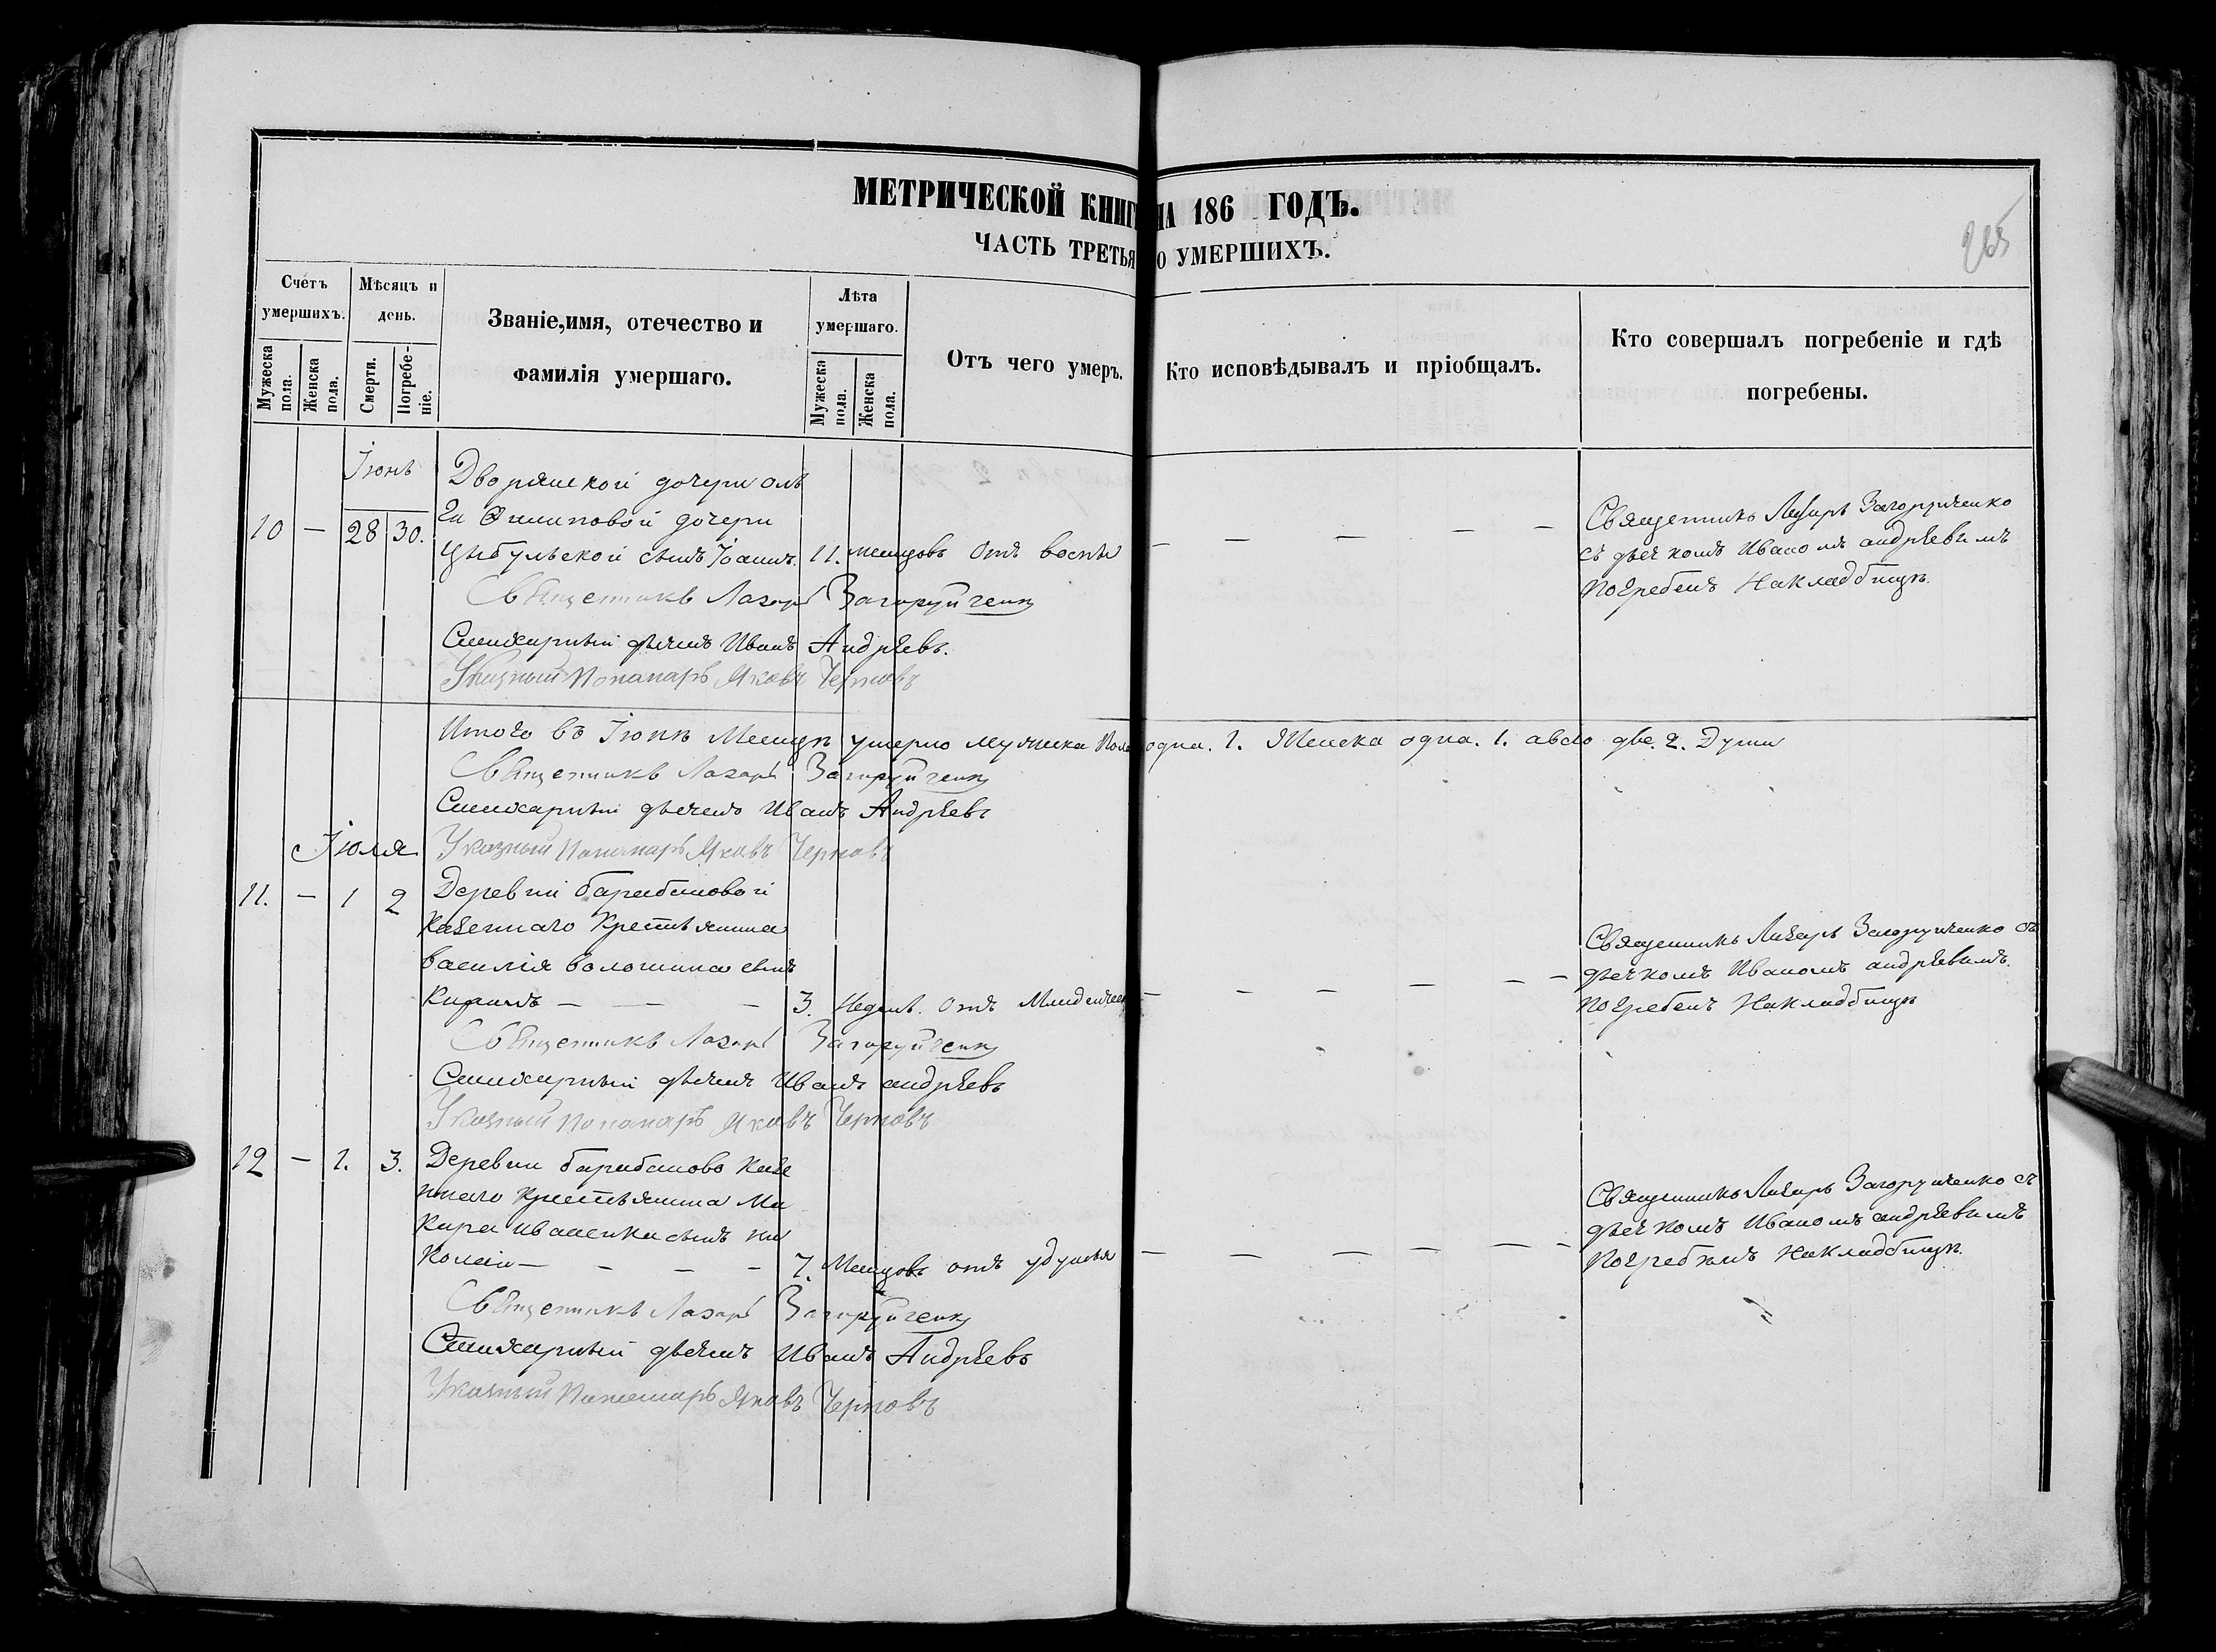 МЕТРИЧЕСКОЙ КНИГ НА 186 ГОДЪ.
ЧАСТЬ ТРЕТЬЯ О УМЕРШИХЪ.
265
Счетъ умершихъ.
Мужеска пола.
Женска пола.
Мѣсяцъ и день.
Смерти.
Погребеніе.
Званіе, имя, отечество и фамилія умершаго.
Лѣта умершаго.
Мужеска пола.
Женска пола.
Отъ чего умеръ.
Кто исповѣдывалъ и пріобщалъ.
Кто совершалъ погребеніе и гдѣ погребены.
Іюнь
10 — 28 30.
Дворянской дочери Оль
ги Филиповой дочери
Цибульской сынъ Іоаннъ. 11. месяцовъ Отъ воспы — — — — —
Священникъ Лазарь Загоруйченко
съ дьячкомъ Иваномъ андрѣевимъ
погребенъ Накладбищѣ.
Священникъ Лазарь Загоруйченко
Стихарный дьячекъ Иванъ Андрѣевъ.
Указный Пономарь Яковъ Черновъ
Итого въ Іюнѣ Месяцѣ умерло мужеска Пола одна. 1. Женска одна. 1. авсго две. 2. Души
Священникъ Лазарь Загоруйченко
Стихарный дьячекъ Иванъ Андрѣевъ
Указный Пономарь Яковъ Черновъ
Іюля
11. — 1 2
Деревни барабашовой
Казеннаго Крестьянина
василія волошина сынъ
Кирилъ — — — 3. Недель. Отъ Младенчес — — — — — —
Священникъ Лазарь Загоруйченко съ
дьячкомъ Иваномъ андрѣевимъ.
погребенъ Накладбищѣ
Священникъ Лазарь Загоруйченко
Стихарный дьячекъ Иванъ андрѣевъ
Указный Пономарь Яковъ Черновъ
12 — 1. 3.
Деревни барабашово Казе
ннаго Крестьянина Ма
кара иваненка сынъ ни
колай — — — — 7. Месяцовъ отъ удушья — — — — — —
Священникъ Лазарь Загоруйченко съ
дьячкомъ Иваномъ андрѣевимъ
Погребенъ Накладбищѣ.
Священникъ Лазарь Загоруйченко
Стихарный дьячекъ Иванъ Андрѣевъ
Указный Пономарь Яковъ Черновъ